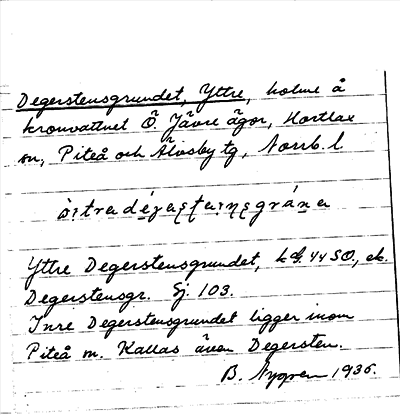 Degerstensgrundet, Yttre, holme å
kronvattnet Ö. Jävre ägor, Hortlax
sn, Piteå och Älvsby tg, Norrb. l
Yttre Degerstensgrundet, k bl. 44 SO., ek.
Degerstensgr. Sj. 103.
Inre Degerstensgrundet ligger inom
Piteå m. Kallas även Degersten.
B. Nygren 1936.